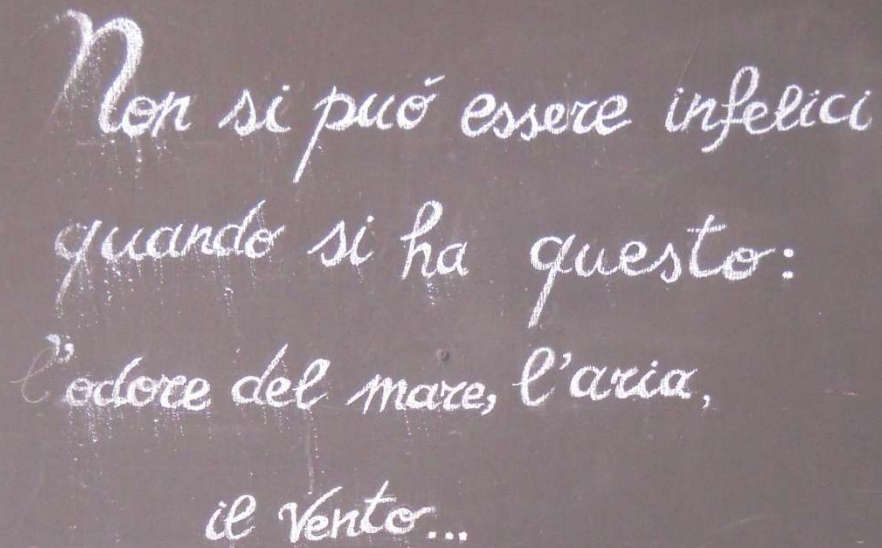 Non si puó essere infelici
quando si ha questo:
l'odore del mare, l'aria,
il vento...